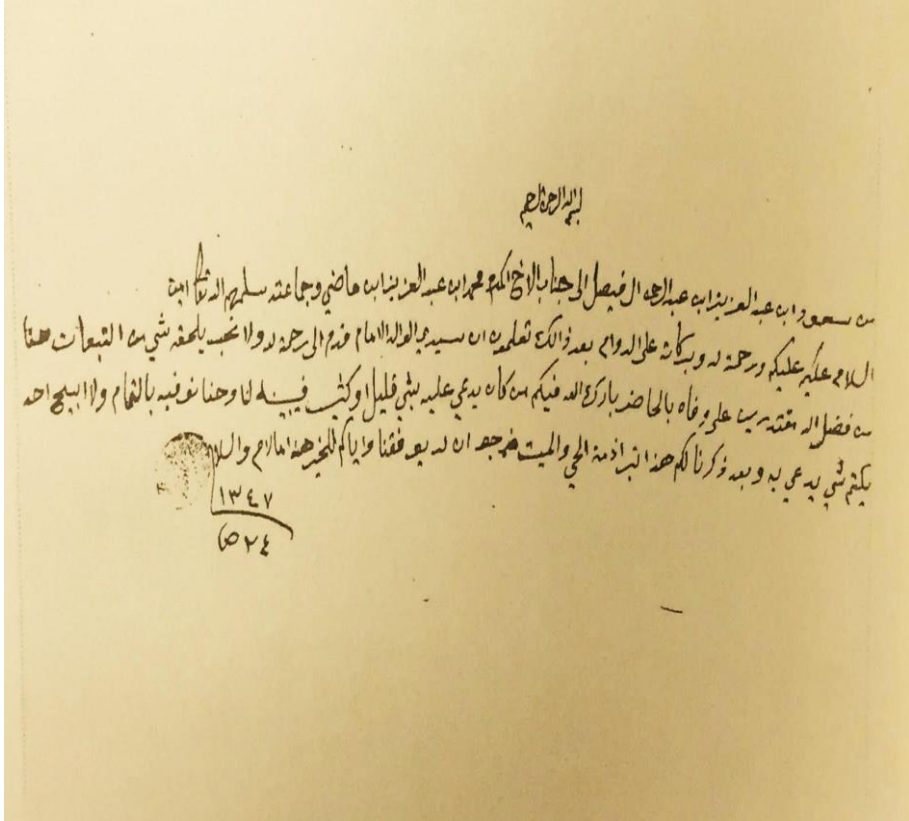 بسم الله الرحمن الرحيم
من سعود ابن عبد العزيز ابن عبد الرحمن ال فيصل الى جناب الاخ المكرم محمد ابن عبد العزيز ابن ماضي وجماعته سلمهم الله تعالى امين
السلام عليكم ورحمة له وبركاته على الدوام بعد ذالك تعلمون ان سيدي الوالد الامام قدم الى رحمة له ولا نحب يلحقه شي من التبعات حنا
من فضل الله مقتدرين على وفاه بالحاضر بارك الله فيكم من كان يدعي عليه بشي قليل او كثير يبينه لنا وحنا نوفيه بالتمام ولا ابيح احد
يكتم شي يدعي به وبعد ذكرنا لكم هذا تبرا ذمة الحي والميت نرجو ان له يوفقنا واياكم للخير هذا مالزم والسلام
١٣٤٧
٢٤ ص